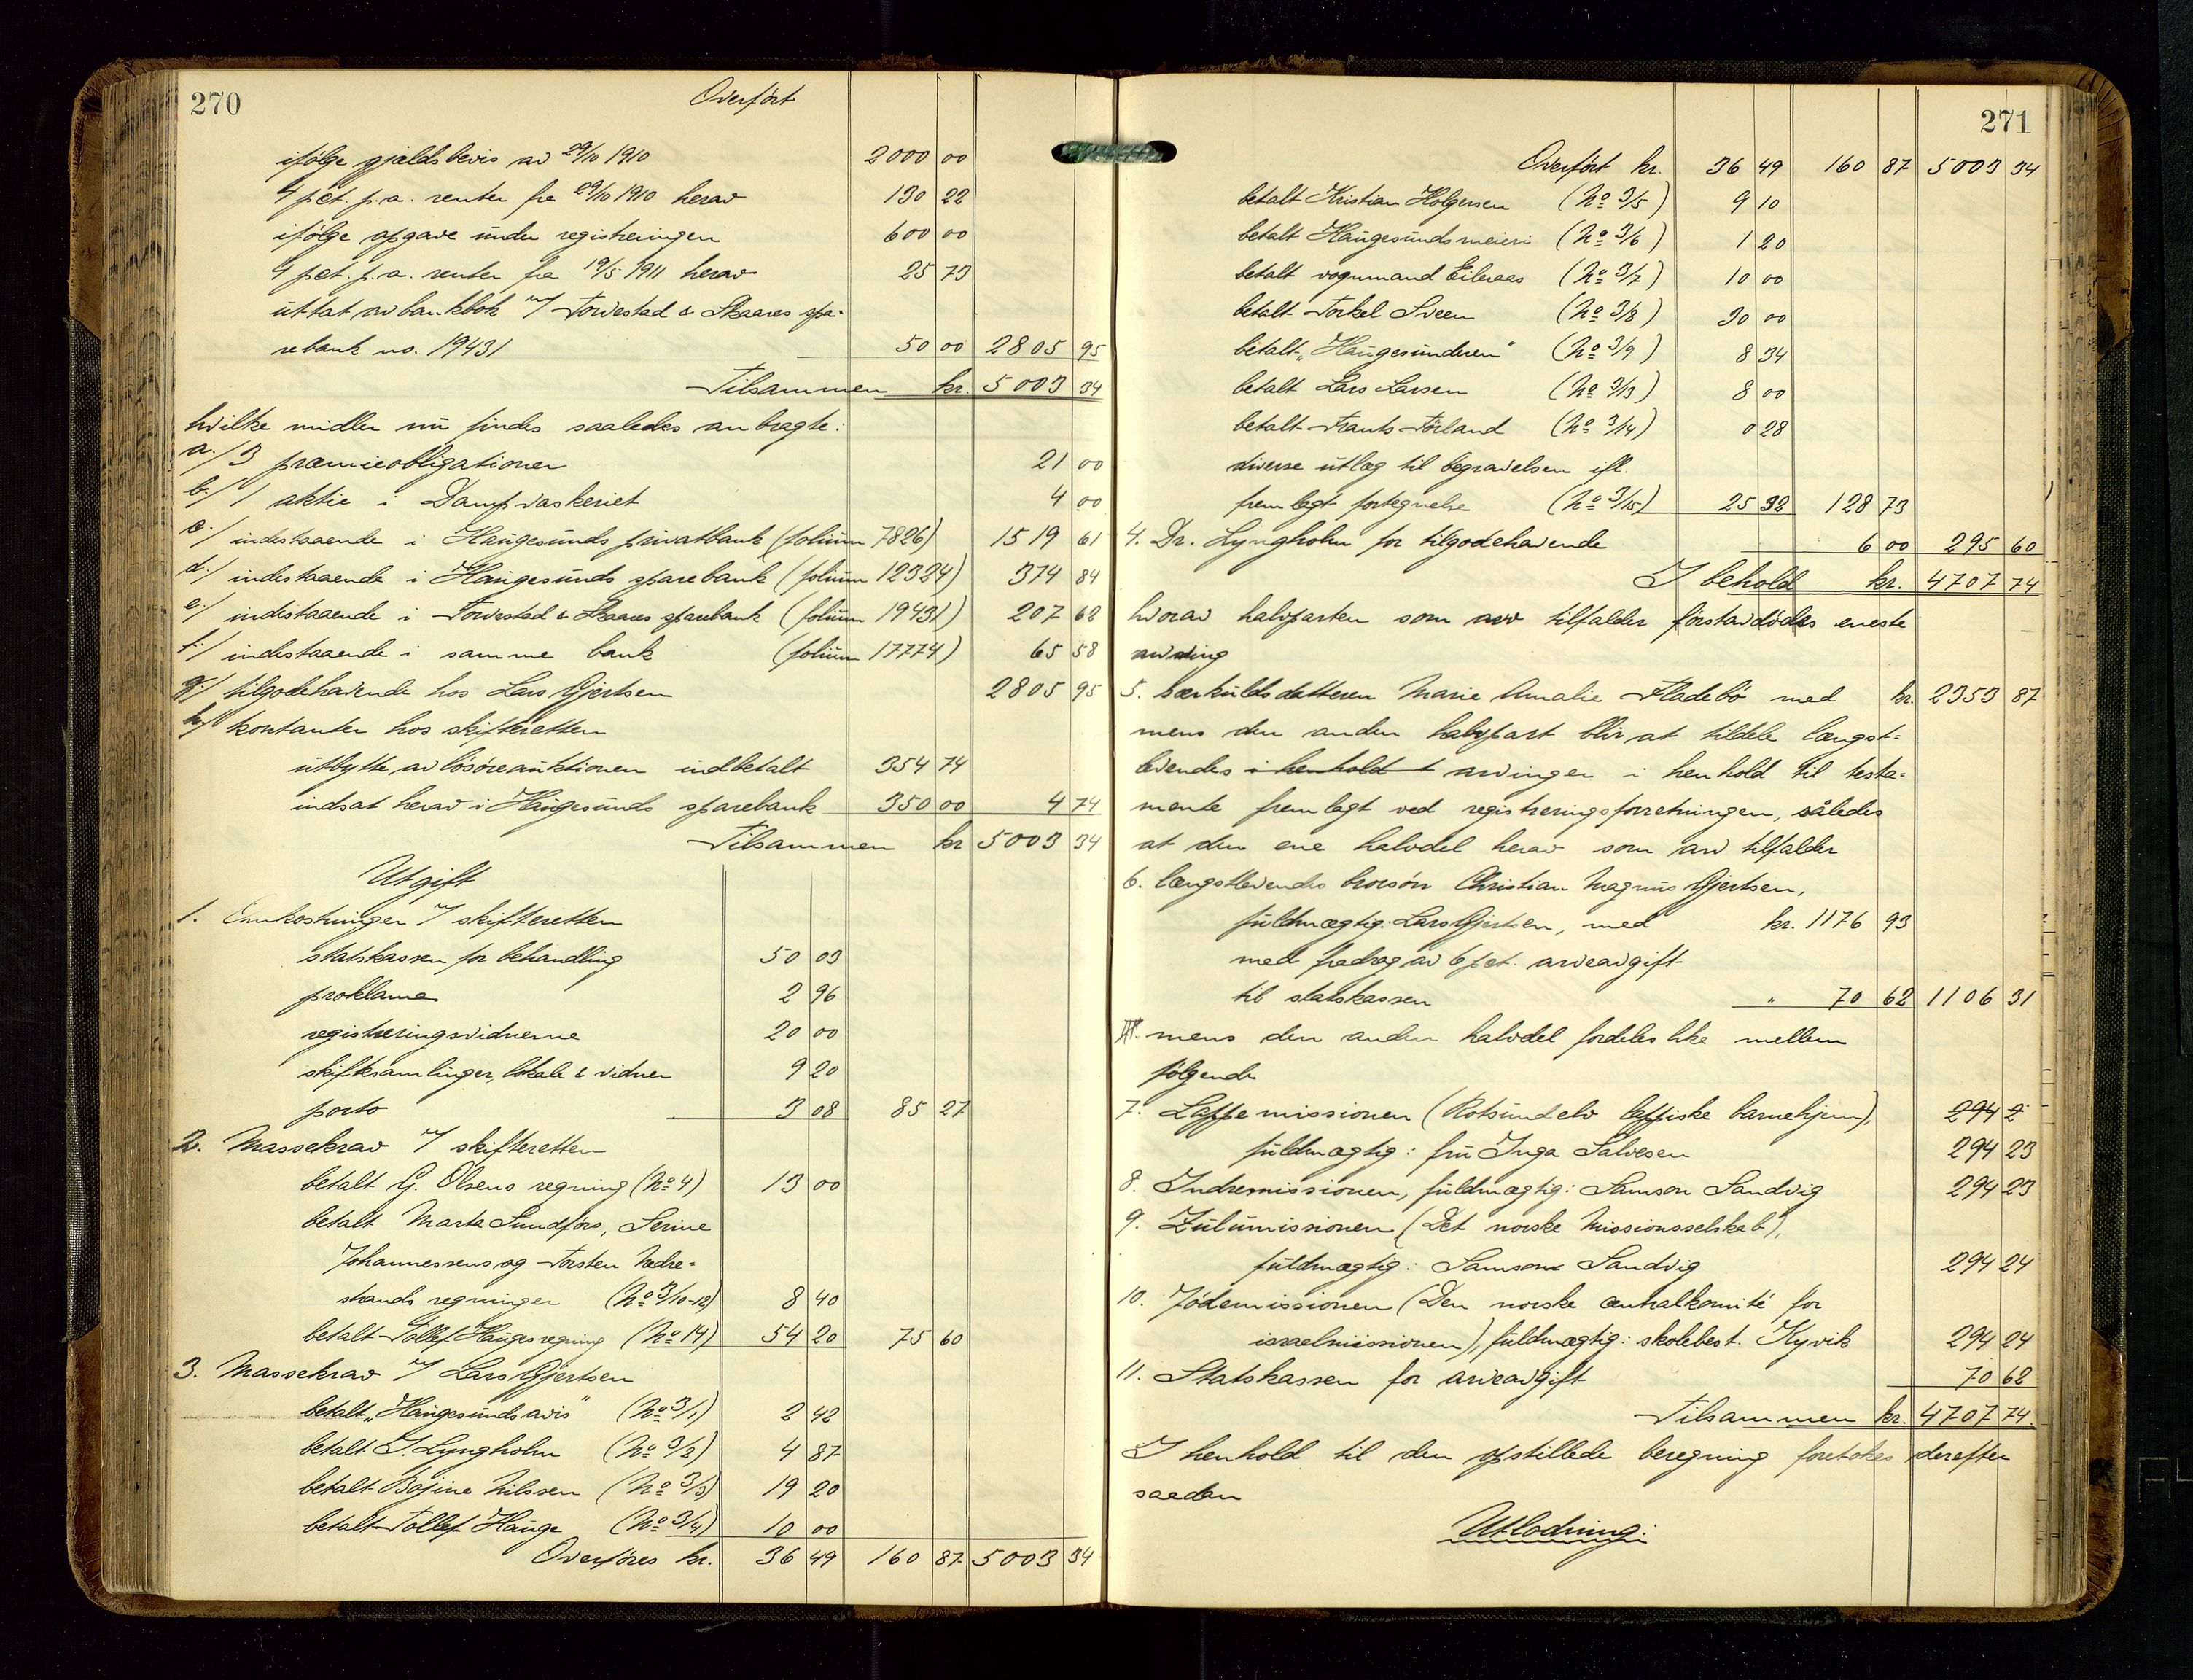 270
Overført
ifølge gjældsbevis av 29/10 1910 2000 00
4 pct. p.a. renter fra 29/10 1910 herav 130 22
ifølge opgave under registreringen 600 00
4 pct. p.a. renter fra 19/5 1911 herav 25 73
uttat av bankbok ./. Torvestad & Skaares spa-
rebank no. 19431 50 00 2805 95
Tilsammen kr. 5003 34
hvilke midler nu findes saaledes anbragte:
a./ 3 præmieobligationer 21 00
b./ 1 aktie i Dampvaskeriet 4 00
c./ indestaaende i Haugesunds privatbank (folium 7826) 1519 61
d./ indestaaende i Haugesunds sparebank (folium 12324) 374 84
e./ indestaaende i Torvestad & Skaares sparebank (folium 19431) 207 62
f./ indestaaende i samme bank (folium 17774) 65 58
g./ tilgodehavende hos Lars Gjertsen 2805 95
h./ kontanter hos skifteretten
utbytte av løsøreauktionen indbetalt 354 74
indsat herav i Haugesunds sparebank 350 00 4 74
Tilsammen kr 5003 34
Utgift
1. Omkostninger ./. skifteretten
statskassen for behandling 50 03
proklama 2 96
registreringsvidnerne 20 00
skiftesamlinger, lokale & vidner 9 20
porto 3 08 85 27
2. Massekrav ./. skifteretten
betalt G. Olsens regning (No 4) 13 00
betalt Marta Sundførs, Serine
Johannessens og Torsten Nedre-
strands regninger (No 3/10-12) 8 40
betalt Tollef Hauges regning (No 14) 54 20 75 60
3. Massekrav ./. Lars Gjertsen
betalt „Haugesunds avis" (No 3/1) 2 42
betalt J. Lyngholm (No 3/2) 4 87
betalt Bosine Nilssen (No 3/3) 19 20
betalt Tollef Hauge (No 3/4) 10 00
Overføres kr. 36 49 160 87 5003 34
271
Overført kr. 36 49 160 87 5003 34
betalt Kristian Holgersen (No 3/5) 9 10
betalt Haugesunds meieri (No 3/6) 1 20
betalt vognmand Eileraas (No 3/7) 10 00
betalt Torkel Sveen (No 3/8) 30 00
betalt „Haugesunderen" (No 3/9) 8 34
betalt Lars Larsen (No 3/13) 8 00
betalt Frants Førland (No 3/14) 0 28
diverse utlæg til begravelsen ifl.
fremlagt fortegnelse (No 3/15) 25 32 128 73
4. Dr. Lyngholm for tilgodehavende 6 00 295 60
I behold kr. 4707 74
hvorav halvparten som arv tilfalder førstavdødes eneste
arving
5. særkuldsdatteren Marie Amalie Fladebø med kr. 2353 87
mens den anden halvpart blir at tildele længst-
levendes i henhold t arvinger i henhold til testa-
mente fremlagt ved registreringsforretningen, således
at den ene halvdel herav som arv tilfalder
6. længstlevendes brorsøn Christian Magnus Gjertsen,
fuldmægtig: Lars Gjertsen, med kr. 1176 93
med fradrag av 6 pct. arveavgift
til statskassen " 70 62 1106 31
mens den anden halvdel fordeles like mellem
følgende
7. Lappemissionen (Rotsundelv lappiske barnehjem), 294 2
fuldmægtig: fru Inga Salvesen 294 23
8. Indremissionen, fuldmægtig: Samson Sandvig 294 23
9. Zulumissionen (Det norske Missionsselskab),
fuldmægtig: Samson Sandvig 294 24
10. Jødemissionen (Den norske centralkomité for
israelmissionen), fuldmægtig: skolebest. Kyvik 294 24
11. Statskassen for arveavgift 70 62
Tilsammen kr. 4707 74.
I henhold til den opstillede beregning foretokes derefter
saadan
Utlodning: